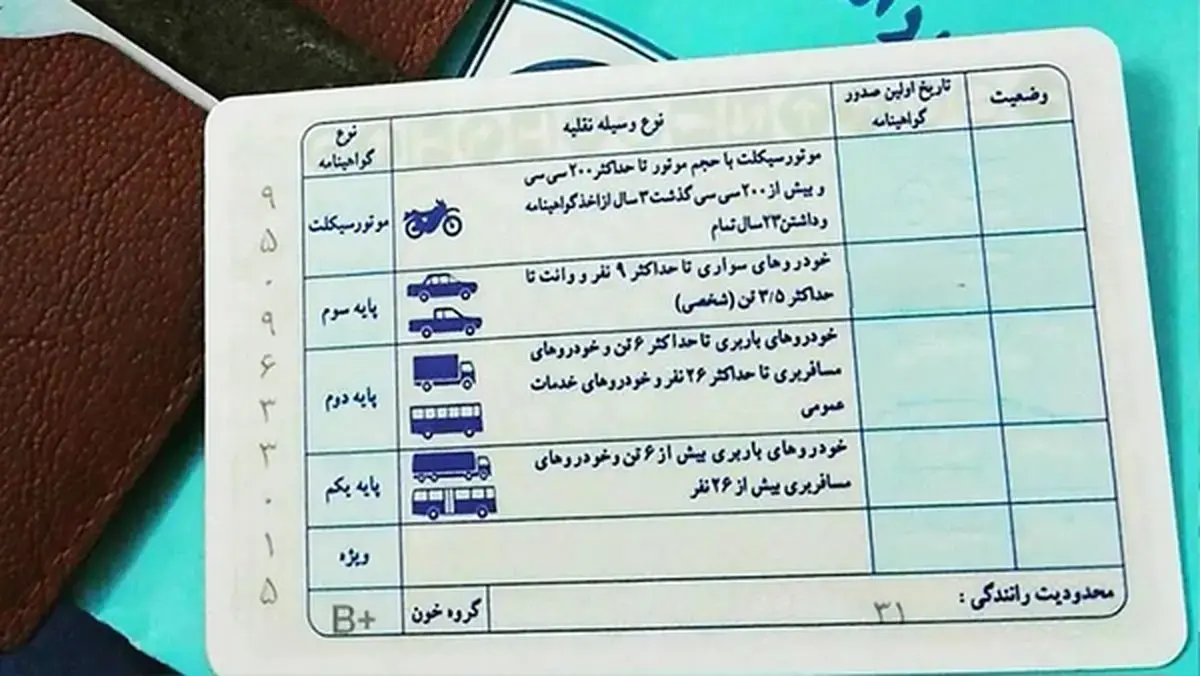 وضعیت
تاریخ اولین صدور
گواهینامه
نوع وسیله نقلیه
نوع
گواهینامه
موتورسیکلت با حجم موتور تا حداکثر ۲۰۰ سی سی
و بیش از ۲۰۰ سی سی گذشت ۳ سال از اخذ گواهینامه
و داشتن ۲۳ سال تمام
موتورسیکلت
خودروهای سواری تا حداکثر ۹ نفر و وانت تا
حداکثر ۳/۵ تن (شخصی)
پایه سوم
خودروهای باربری تا حداکثر ۶ تن و خودروهای
مسافربری تا حداکثر ۲۶ نفر و خودروهای خدمات
عمومی
پایه دوم
خودروهای باربری بیش از ۶ تن و خودروهای
مسافربری بیش از ۲۶ نفر
پایه یکم
ویژه
محدودیت رانندگی :
۳۱
گروه خون
B+
۹
۵
۰
۹
۶
۳
۳
۰
۱
۵